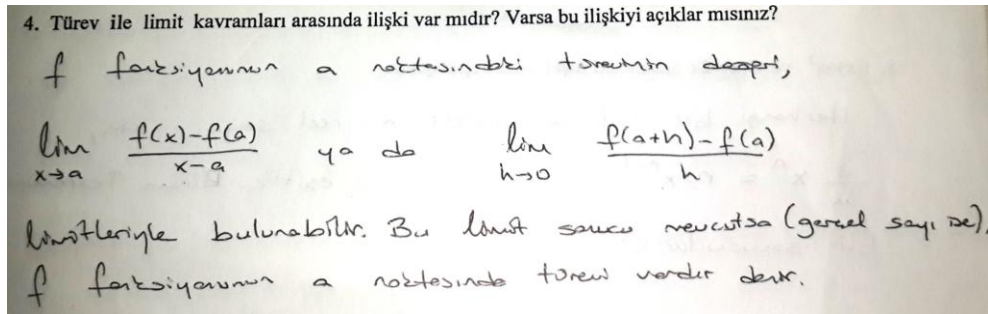 4. Türev ile limit kavramları arasında ilişki var mıdır? Varsa bu ilişkiyi açıklar mısınız?
f fonksiyonunun a noktasındaki türevinin değeri,
lim x→a (f(x)-f(a))/(x-a) ya da lim h→0 (f(a+h)-f(a))/h
limitleriyle bulunabilir. Bu limit sonucu mevcutsa (gerçel sayı ise),
f fonksiyonunun a noktasında türevi vardır denir.